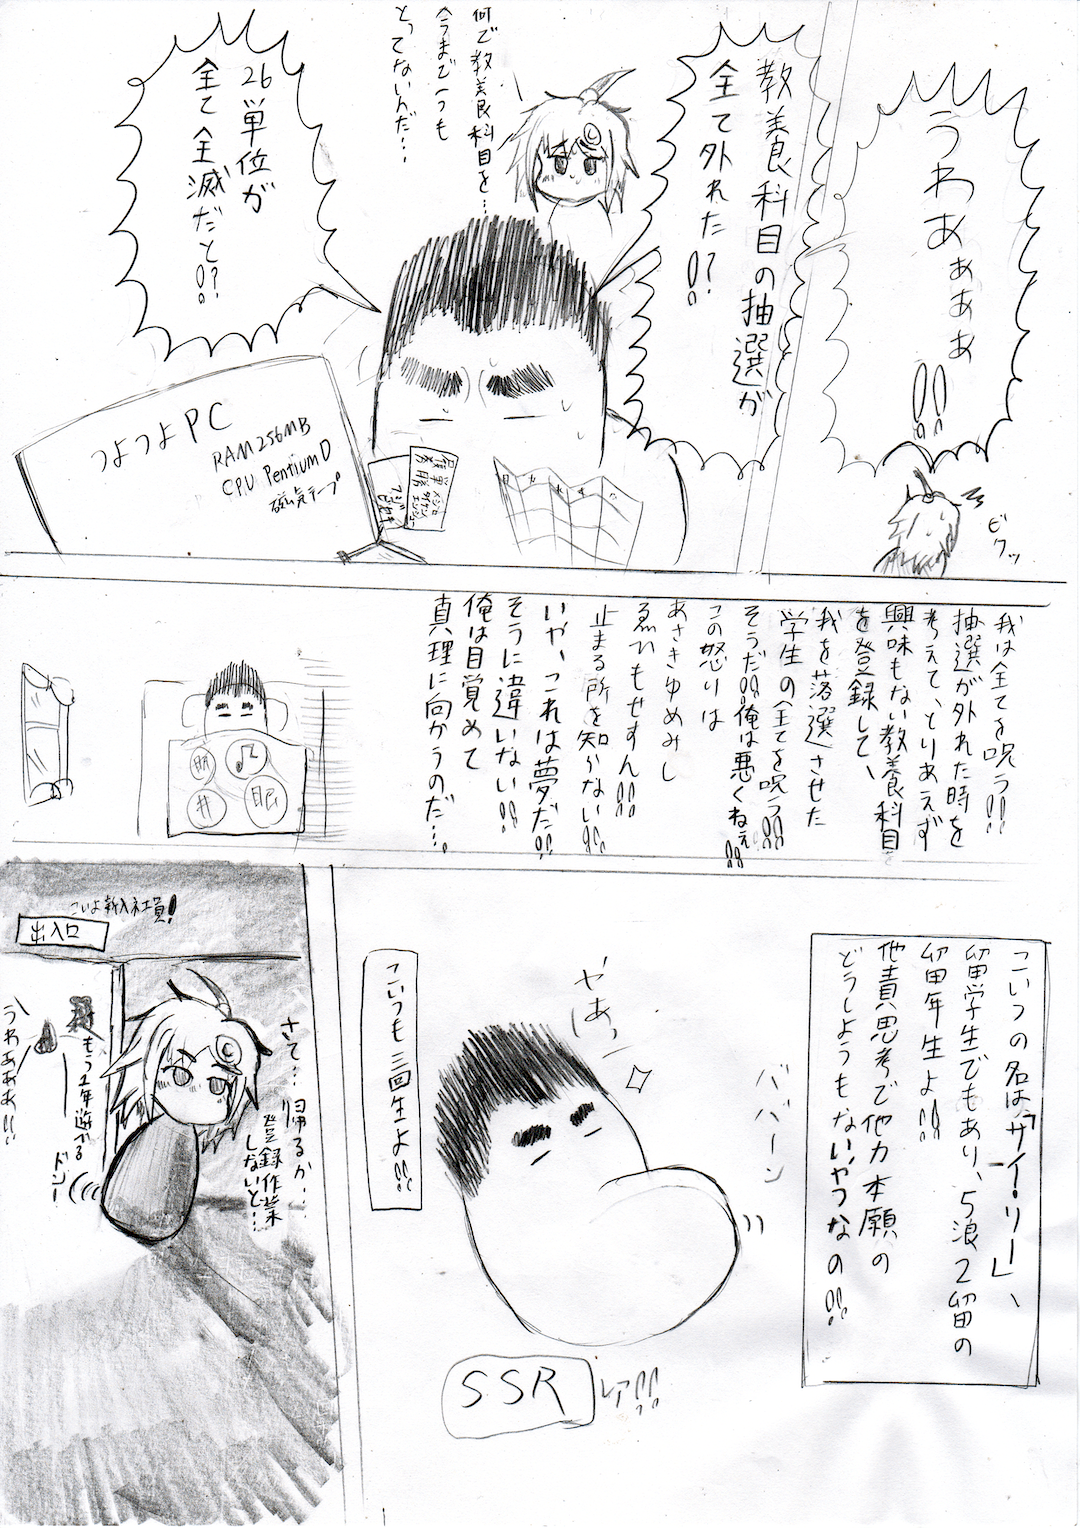 うわあぁぁぁ!!
ビクッ
教養科目の抽選が
全て外れた!?
何で教養科目を…
今まで一つも
とってないんだ…
26単位が
全て全滅だと!?
つよつよPC
RAM256MB
CPU PentiumD
磁気テープ
単勝
我は全てを呪う!!
抽選が外れた時を
考えて、とりあえず
興味もない教養科目を
を登録して、
我を落選させた
学生の全てを呪う!!
そうだ!!俺は悪くねぇ!!
この怒りは
あさきゆめみし
ゑひもせすん!!
止まる所を知らない!!
いや、これは夢だ!!
そうに違いない!!
俺は目覚めて
真理に向かうのだ…。
眠
井
こいつの名は「サイ・リー」、
留学生でもあり、5浪2留の
留年生よ!!
他責思考で他力本願の
どうしようもないやつなの!!
やあっ
ババーン
こいつも三回生よ!!
SSR
レア!!
こいよ新入社員!
出入口
さて…帰るか…
登録作業
しないと…
もう1年遊べる
ドン!
うわああああ!!